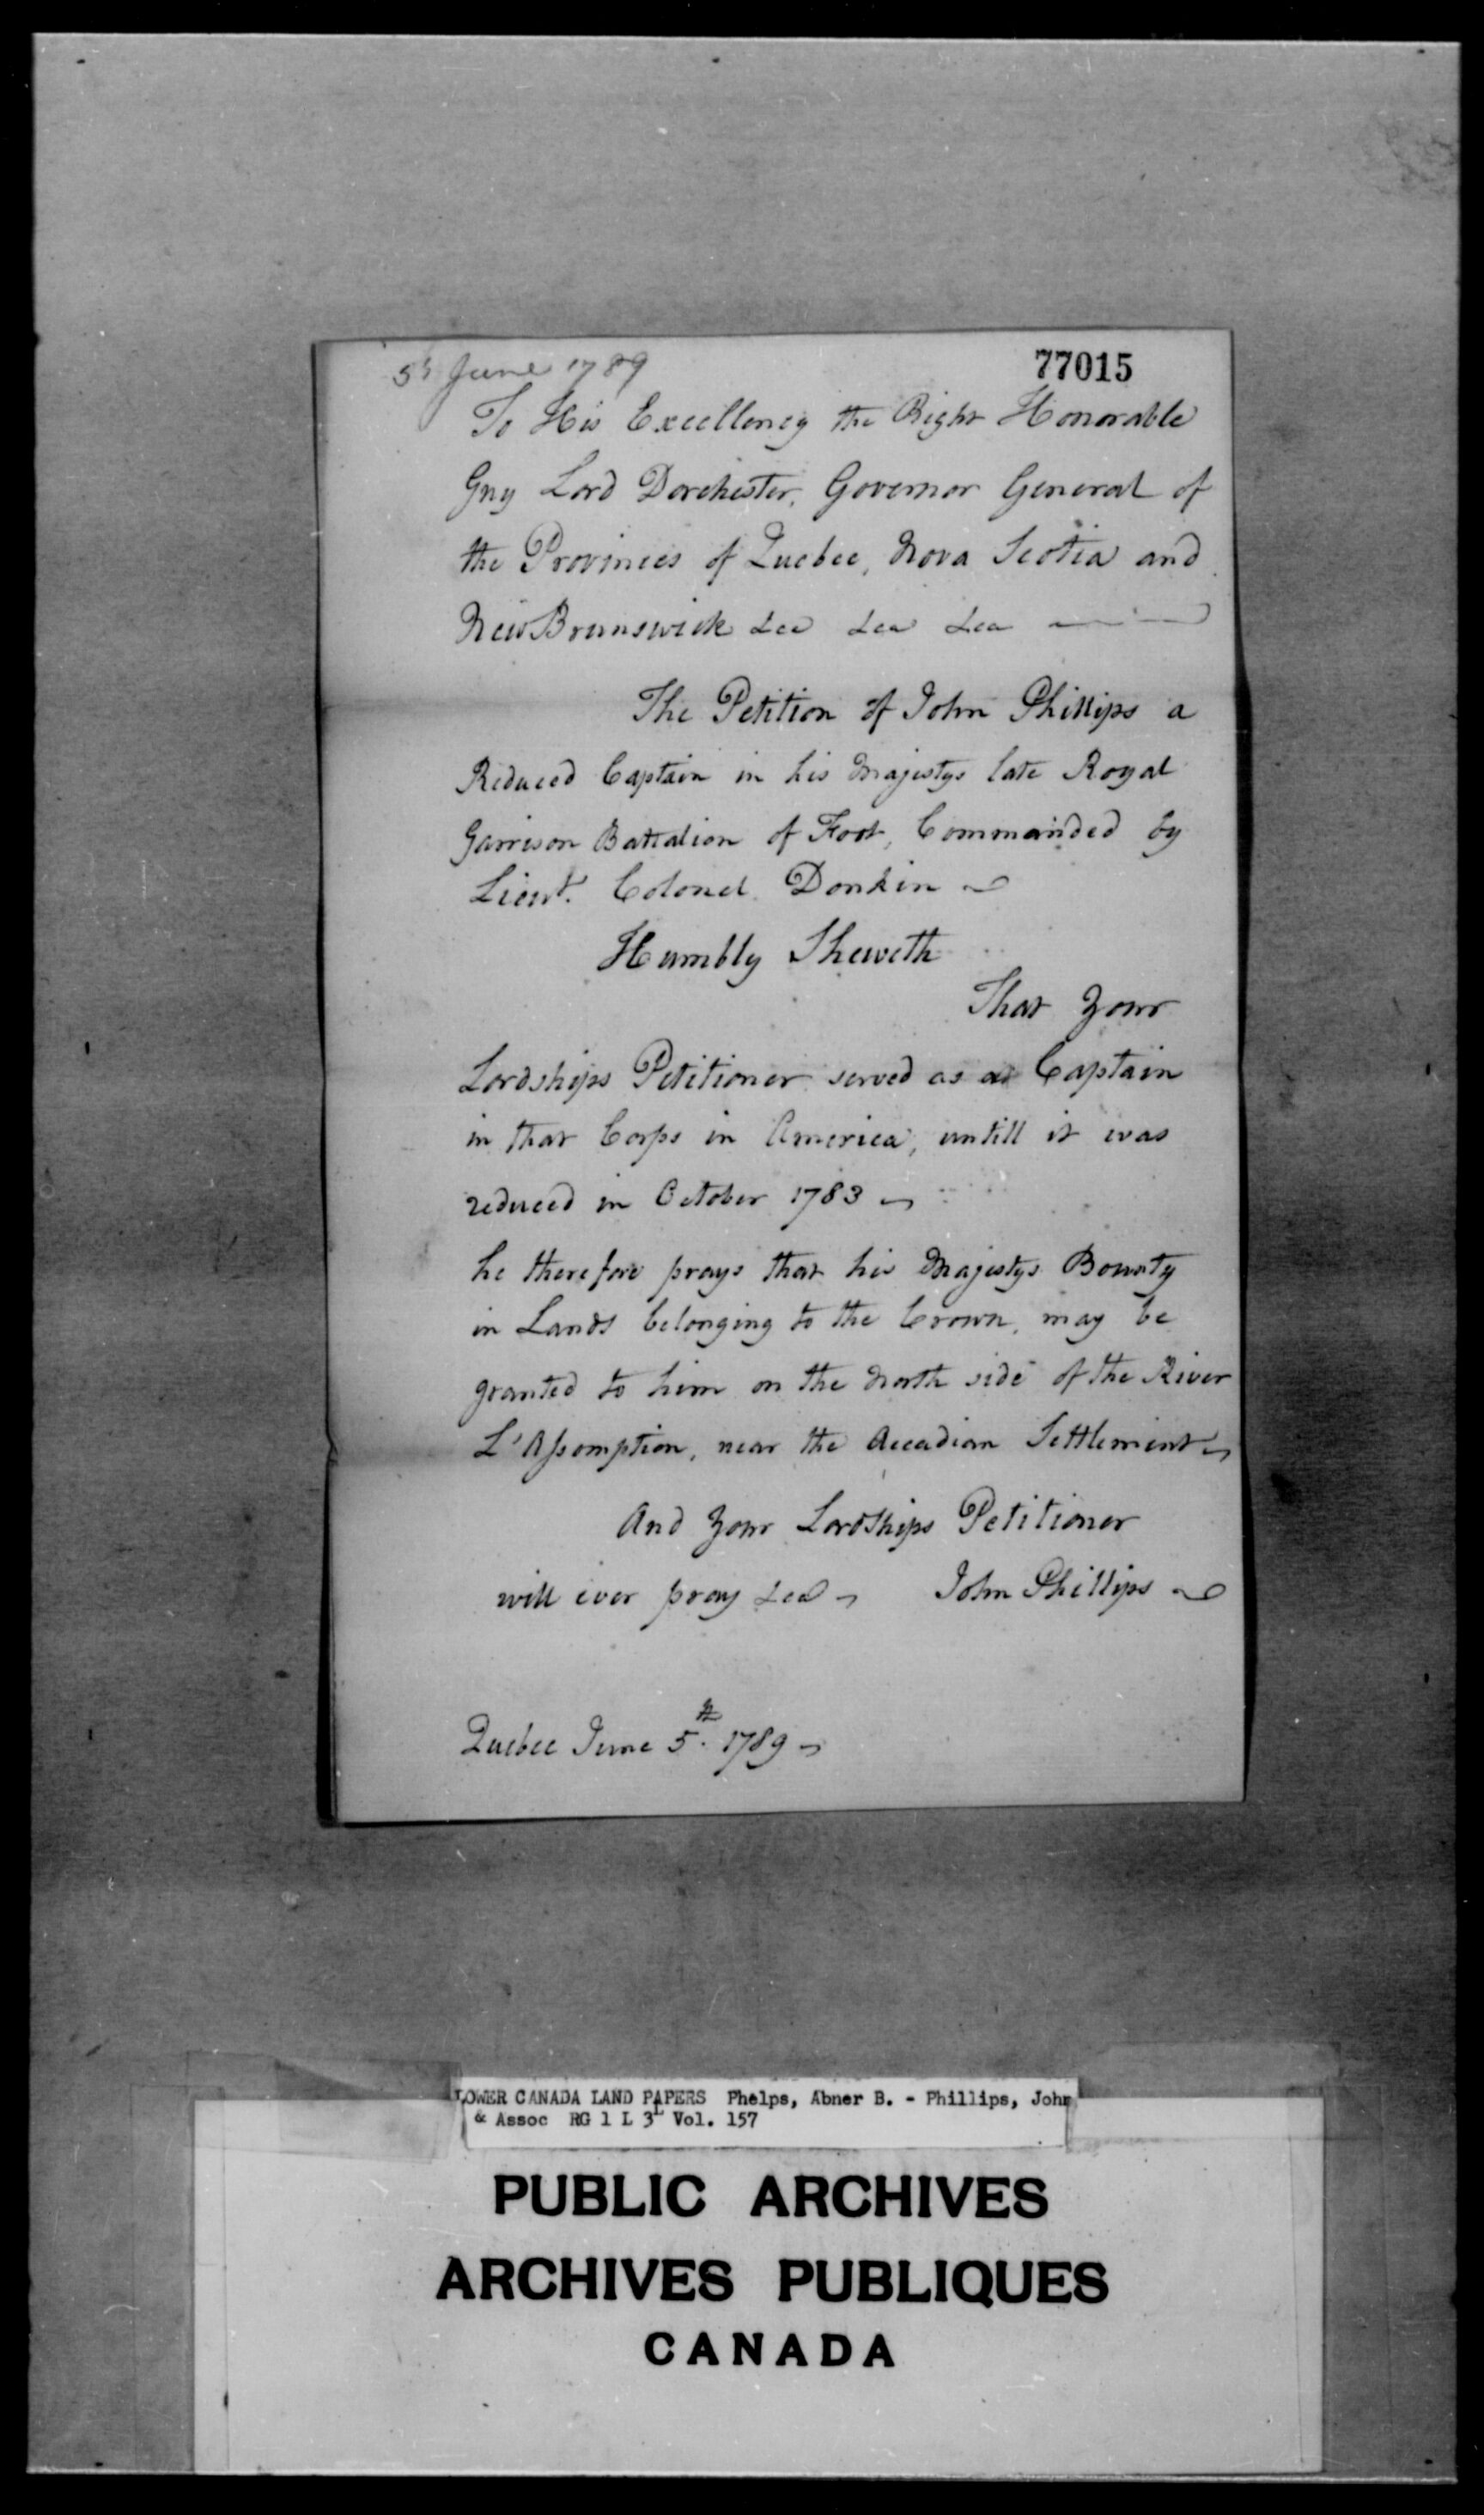 5th June 1789
77015
To His Excellency the Right Honorable
Guy Lord Dorchester, Governor General of
the Provinces of Quebec, Nova Scotia and
New Brunswick &ca &ca &ca
The Petition of John Phillips a
Reduced Captain in his Majestys late Royal
Garrison Battalion of Foot, Commanded by
Lieut. Colonel Donkin
Humbly Sheweth
That your
Lordships Petitioner served as a Captain
in that Corps in America, untill it was
reduced in October 1783
he therefore prays that his Majestys Bounty
in Lands belonging to the Crown, may be
granted to him on the North side of the River
L'Assomption, near the Accadian Settlement
And your Lordships Petitioner
will ever pray &ca John Phillips
Quebec June 5th. 1789
LOWER CANADA LAND PAPERS Phelps, Abner B. - Phillips, John
& Assoc RG 1 L 3L Vol. 157
PUBLIC ARCHIVES
ARCHIVES PUBLIQUES
CANADA